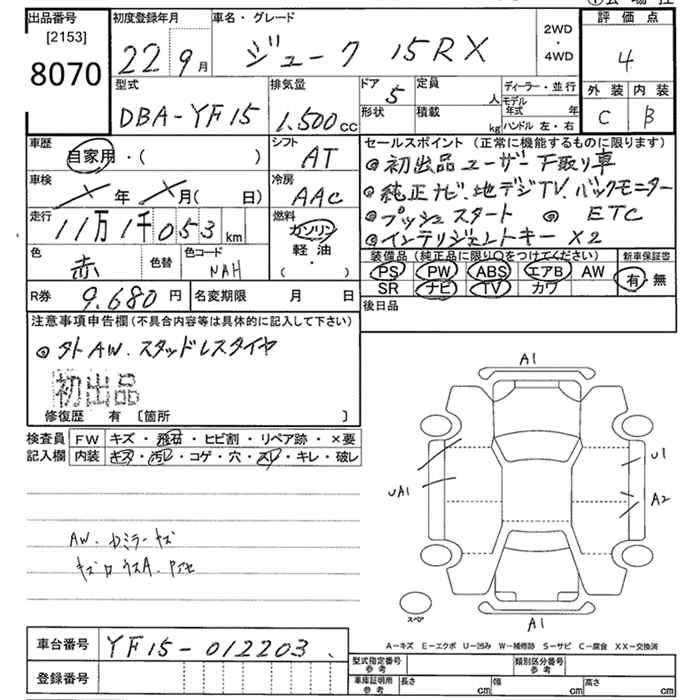 出品番号
[2153]
8070
初度登録年月
22 9月
車名・グレード
ジューク 15RX
2WD
・
4WD
評価点
4
外装 内装
C B
型式
DBA-YF15
排気量
1.500cc
ドア
5
形状
定員
人
積載
kg
ディーラー・並行
モデル年式 年
ハンドル 左・右
車歴
自家用・( )
シフト
AT
車検
年 月( 日)
冷房
AAC
走行
11万1千053km
燃料
ガソリン
軽・油
・
( )
色
赤
色替
色コード
NAH
R券
9.680円
名変期限 月 日
セールスポイント (正常に機能するものに限ります)
◎初出品ユーザー下取り車
◎純正ナビ.地デジTV.バックモニター
◎プッシュスタート ◎ ETC
◎インテリジェントキー×2
装備品(純正品に限り○をつけてください)
新車保証書
PS PW ABS エアB AW
SR ナビ TV カワ
有・無
後日品
注意事項申告欄(不具合内容等は具体的に記入して下さい)
◎外AW.スタッドレスタイヤ
初出品
修復歴 有 〔箇所 〕
検査員
記入欄
FW キズ・飛石・ヒビ割・リペア跡・×要
内装 キズ・汚レ・コゲ・穴・スレ・キレ・破レ
AW.ドミラーキズ
A1
U1
UA1
A2
A1
スペア
A-キズ E-エクボ U-凹み W-補修跡 S-サビ C-腐食 XX-交換済
車台番号
YF15-012203
登録番号
型式指定番号
参考
類別区分番号
参考
車庫証明用
参考
長さ cm 幅 cm 高さ cm